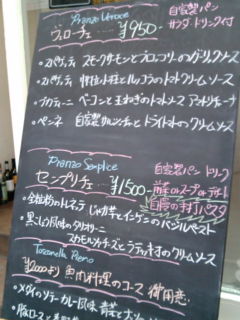 Pranzo Veroce
自家製パン
ヴェローチェ ¥950-
サラダ・ドリンク付
・スパゲッティ スモークサーモンとブロッコリーのガーリックソース
・スパゲッティ とルッコラのトマトクリームソース
ベーコンと玉ねぎのトマトソース アマトリチャーナ
・ペンネ 自家製サルシッチャとドライトマトのクリームソース
Pranzo Semplice
自家製パン ドリンク
センプリチェ ¥1500-
前菜orスープorドルチェ
自慢の手打パスタ
・全粒粉のトレネッテ じゃが芋とインゲンのバジルペースト
・黒こしょう風味のタリオリーニ
スカモルツァチーズとラディッキオのクリームソース
Pranzo Pieno
¥2000より 魚肉料理のコース 御用意
・メダイのソテー カレー風味
・豚ロース